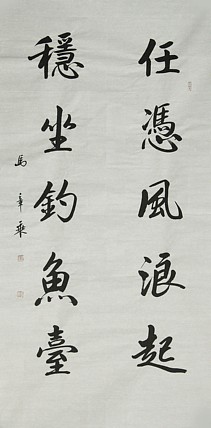 任憑風浪起
穩坐釣魚臺
馬章乘